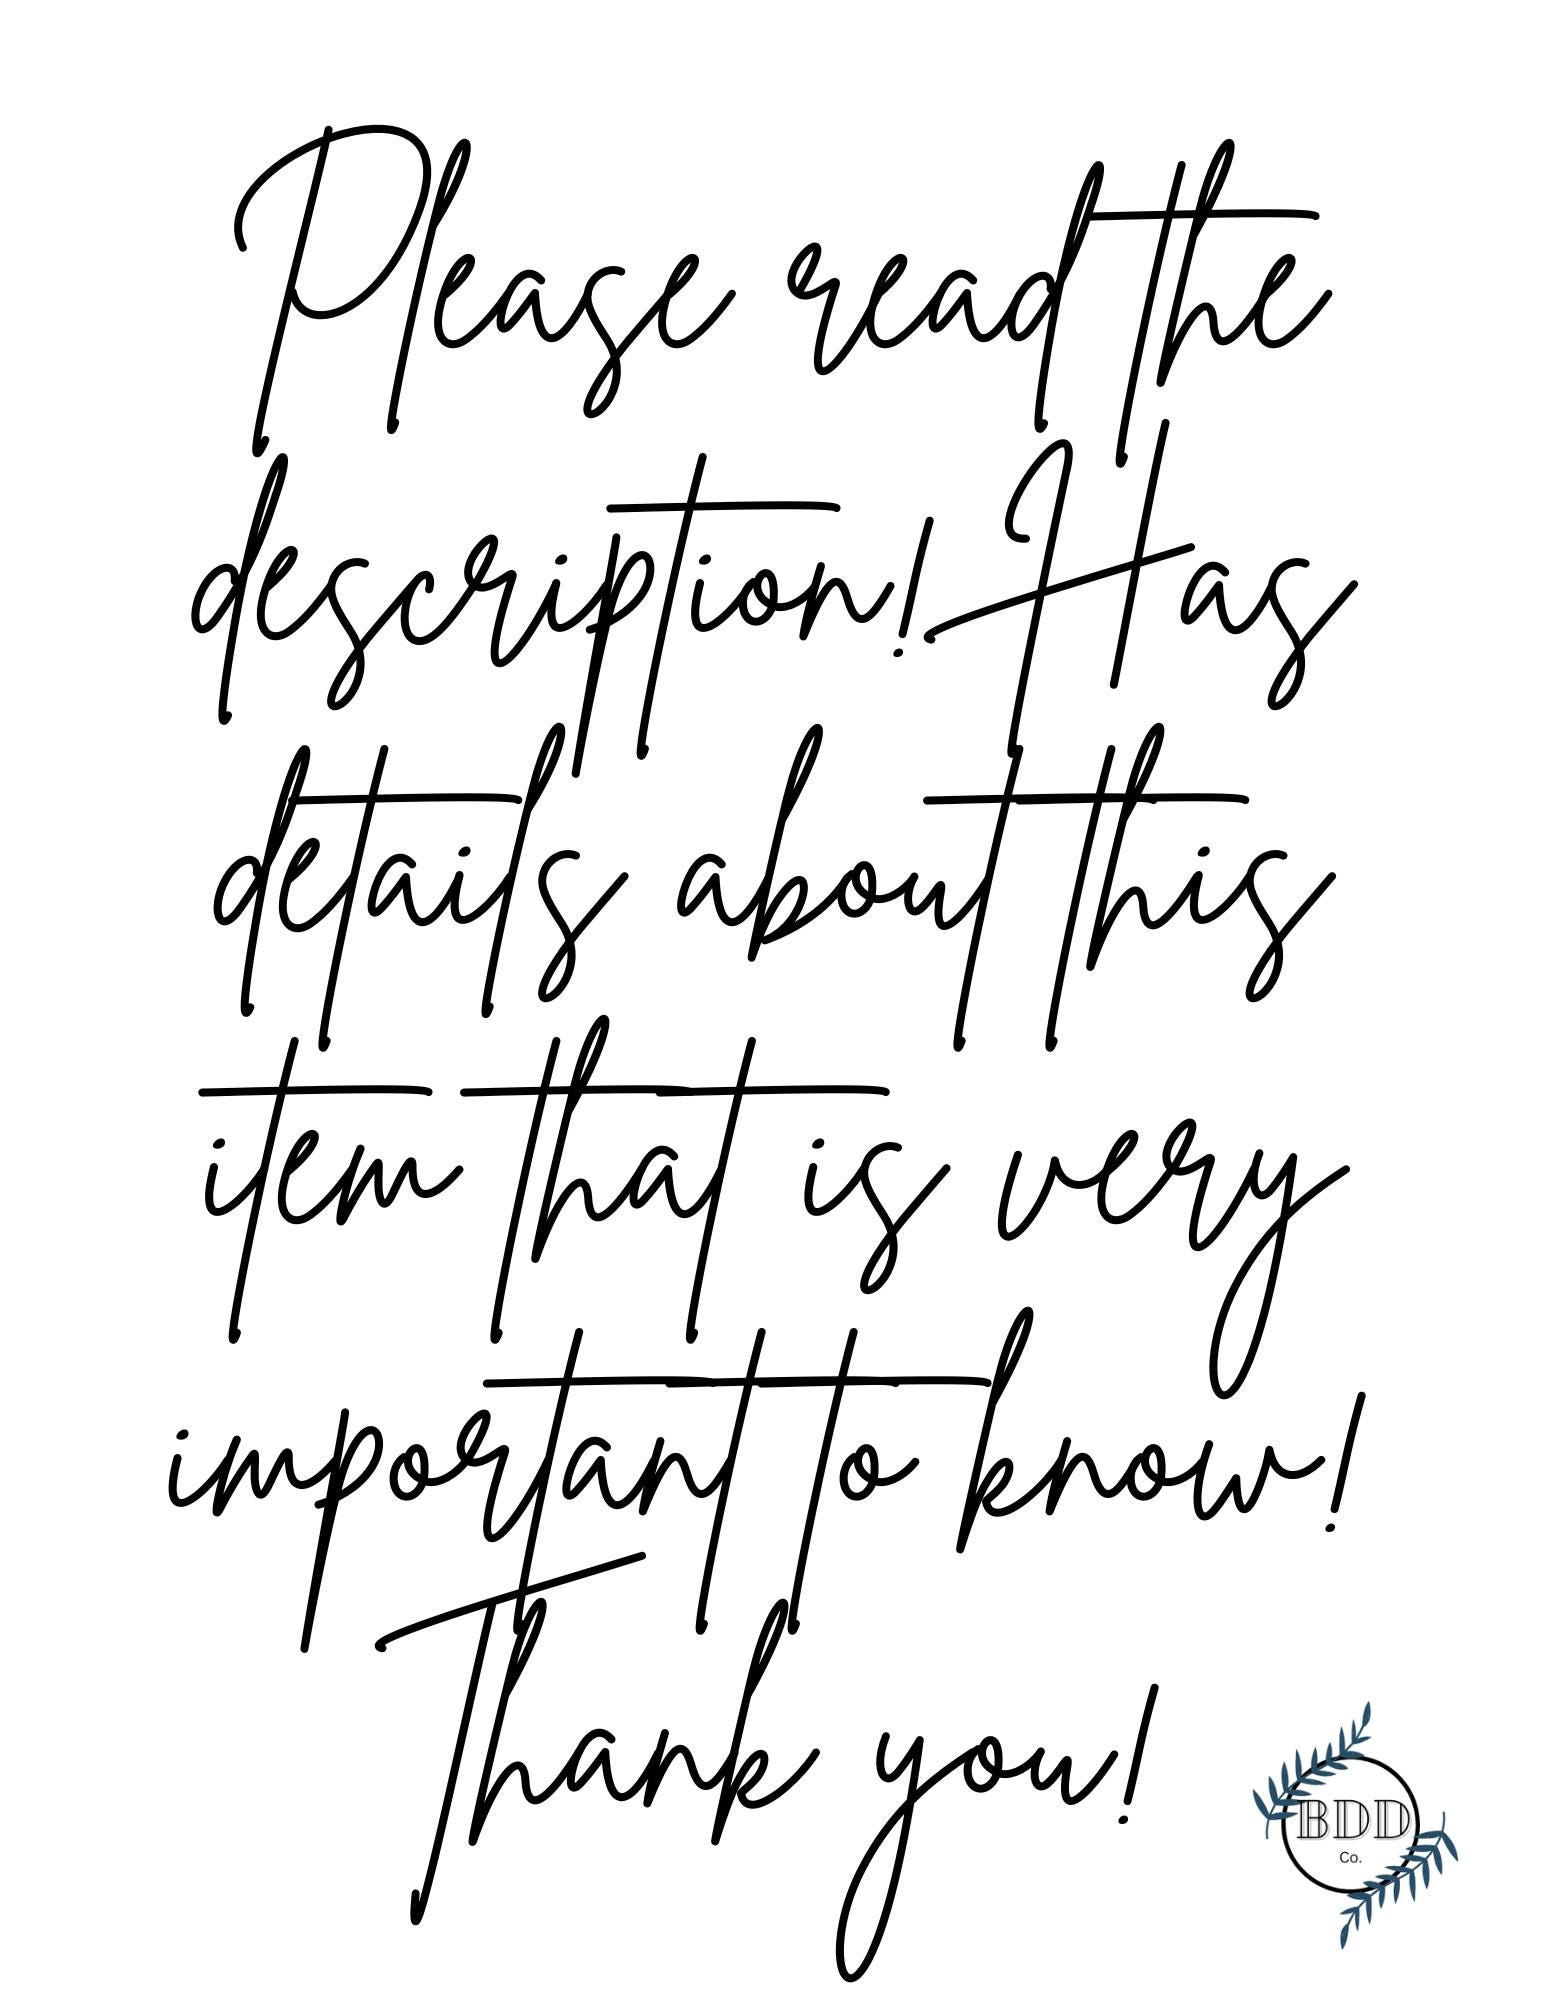 Please read the
description! Has
details about this
item that is very
important to know!
Thank you!
BDD
Co.